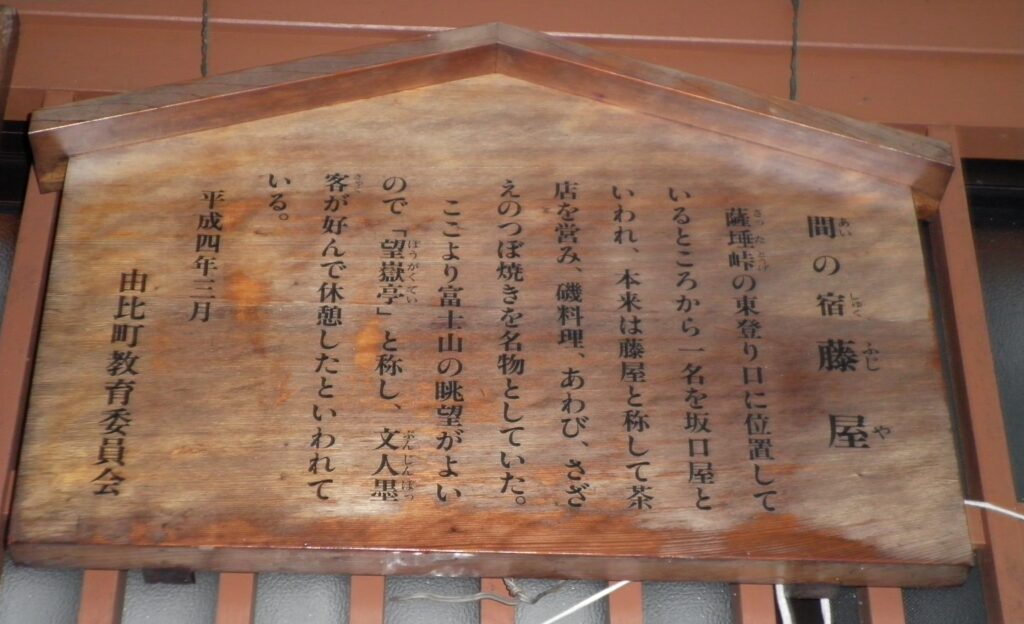 間の宿 藤屋
薩埵峠の東登り口に位置して
いるところから一名を坂口屋と
いわれ、本来は藤屋と称して茶
店を営み、磯料理、あわび、さざ
えのつぼ焼きを名物としていた。
ここより富士山の眺望がよい
ので「望嶽亭」と称し、文人墨
客が好んで休憩したといわれて
いる。
平成四年三月
由比町教育委員会